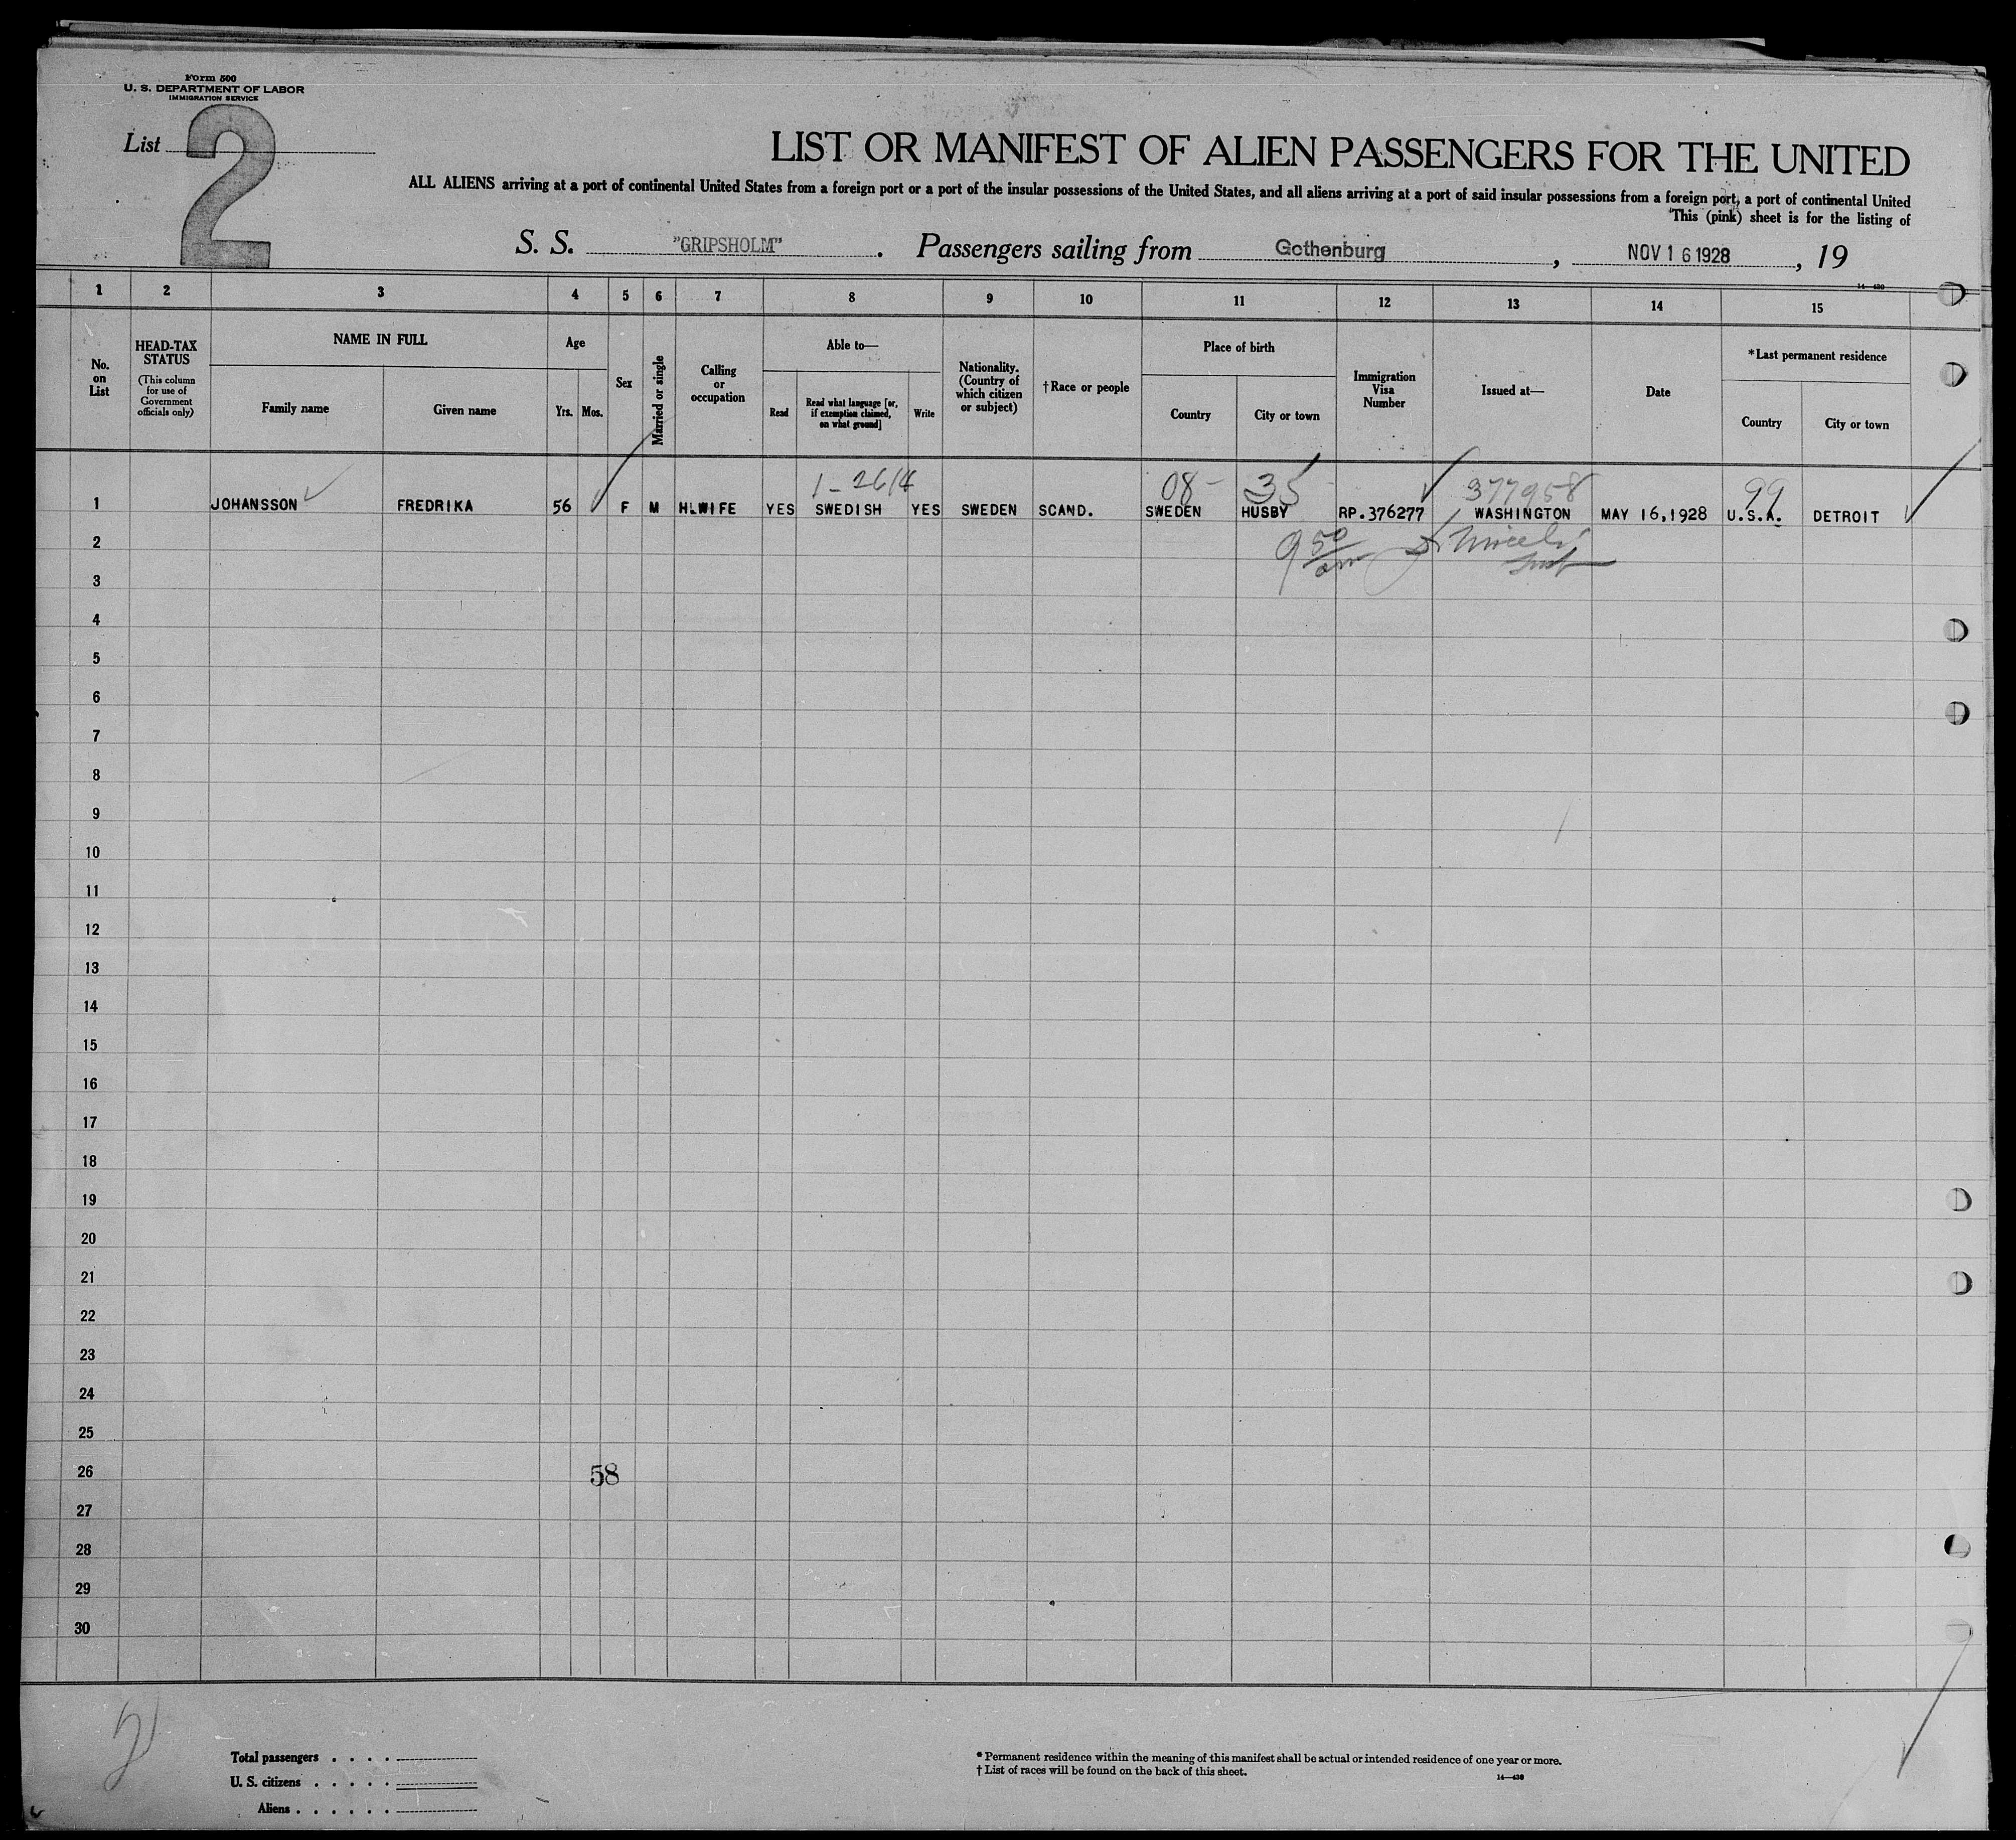 Form 500
U. S. DEPARTMENT OF LABOR
IMMIGRATION SERVICE
List 2
LIST OR MANIFEST OF ALIEN PASSENGERS FOR THE UNITED
ALL ALIENS arriving at a port of continental United States from a foreign port or a port of the insular possessions of the United States, and all aliens arriving at a port of said insular possessions from a foreign port, a port of continental United
This (pink) sheet is for the listing of
S. S. "GRIPSHOLM". Passengers sailing from Gothenburg, NOV 16 1928, 19
14—430
1 2 3 4 5 6 7 8 9 10 11 12 13 14 15
No. on List
HEAD-TAX STATUS
(This column for use of Government officials only)
NAME IN FULL
Family name
Given name
Age
Yrs. Mos.
Sex
Married or single
Calling or occupation
Able to—
Read
Read what language [or, if exemption claimed, on what ground]
Write
Nationality. (Country of which citizen or subject)
†Race or people
Place of birth
Country
City or town
Immigration Visa Number
Issued at—
Date
*Last permanent residence
Country
City or town
1-2614 08- 35 377958 99
1 JOHANSSON FREDRIKA 56 F M H.WIFE YES SWEDISH YES SWEDEN SCAND. SWEDEN HUSBY RP.376277 WASHINGTON MAY 16,1928 U.S.A. DETROIT
9 50 am
2
3
4
5
6
7
8
9
10
11
12
13
14
15
16
17
18
19
20
21
22
23
24
25
26 58
27
28
29
30
Total passengers . . . .
U. S. citizens . . . . .
Aliens . . . . . .
* Permanent residence within the meaning of this manifest shall be actual or intended residence of one year or more.
† List of races will be found on the back of this sheet.
14—430